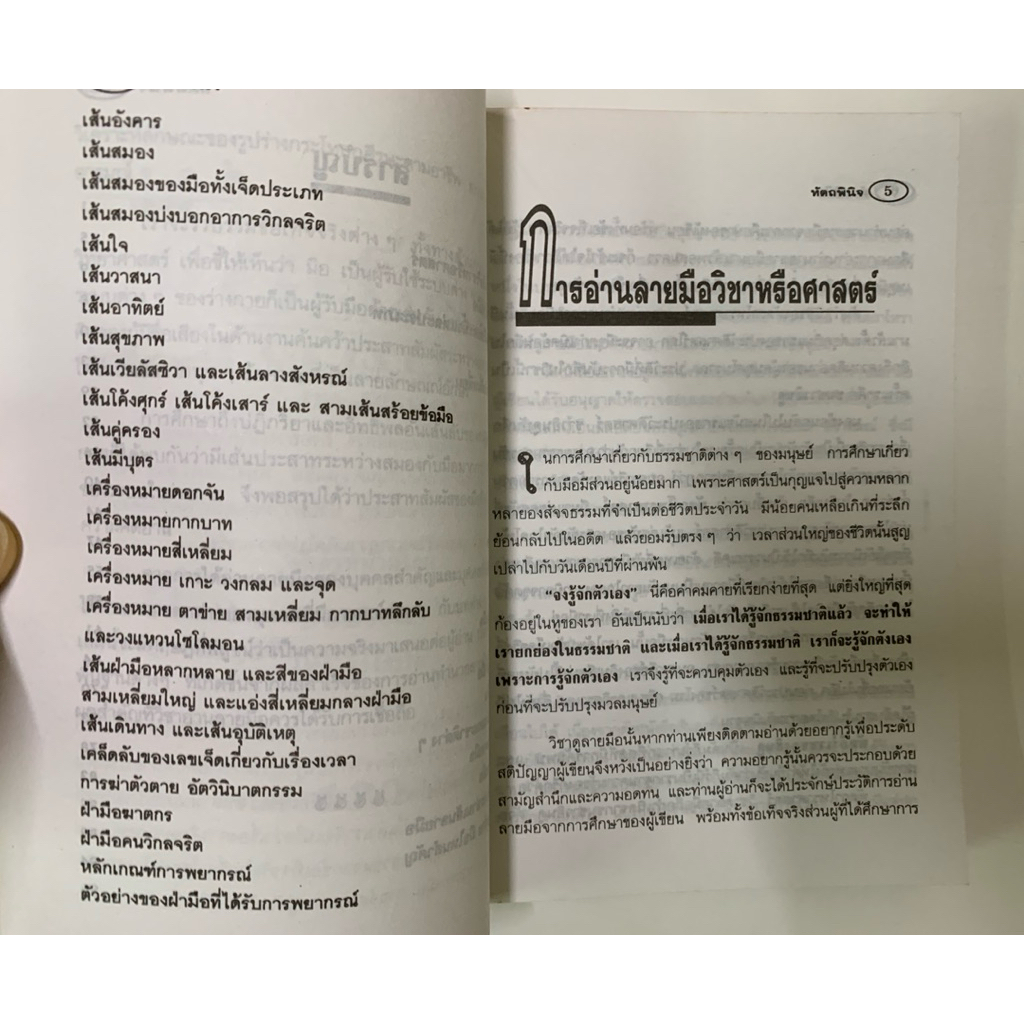 เส้นอังคาร
เส้นสมอง
เส้นสมองของมือทั้งเจ็ดประเภท
เส้นสมองบ่งบอกอาการวิกลจริต
เส้นใจ
เส้นวาสนา
เส้นอาทิตย์
เส้นสุขภาพ
เส้นเวียลัสซิวา และเส้นลางสังหรณ์
เส้นโค้งศุกร์ เส้นโค้งเสาร์ และ สามเส้นสร้อยข้อมือ
เส้นคู่ครอง
เส้นมีบุตร
เครื่องหมายดอกจัน
เครื่องหมายกากบาท
เครื่องหมายสี่เหลี่ยม
เครื่องหมาย เกาะ วงกลม และจุด
เครื่องหมาย ตาข่าย สามเหลี่ยม กากบาทลึกลับ
และวงแหวนโซโลมอน
เส้นฝ่ามือหลากหลาย และสีของฝ่ามือ
สามเหลี่ยมใหญ่ และแอ่งสี่เหลี่ยมกลางฝ่ามือ
เส้นเดินทาง และเส้นอุบัติเหตุ
เคล็ดลับของเลขเจ็ดเกี่ยวกับเรื่องเวลา
การฆ่าตัวตาย อัตวินิบาตกรรม
ฝ่ามือฆาตกร
ฝ่ามือคนวิกลจริต
หลักเกณฑ์การพยากรณ์
ตัวอย่างของฝ่ามือที่ได้รับการพยากรณ์
หัตถพินิจ 5
การอ่านลายมือวิชาหรือศาสตร์
ในการศึกษาเกี่ยวกับธรรมชาติต่าง ๆ ของมนุษย์ การศึกษาเกี่ยว
กับมือมีส่วนอยู่น้อยมาก เพราะศาสตร์เป็นกุญแจไปสู่ความหลาก
หลายองสัจจธรรมที่จำเป็นต่อชีวิตประจำวัน มีน้อยคนเหลือเกินที่ระลึก
ย้อนกลับไปในอดีต แล้วยอมรับตรง ๆ ว่า เวลาส่วนใหญ่ของชีวิตนั้นสูญ
เปล่าไปกับวันเดือนปีที่ผ่านพ้น
“จงรู้จักตัวเอง” นี่คือคำคมคายที่เรียกง่ายที่สุด แต่ยิ่งใหญ่ที่สุด
ก้องอยู่ในหูของเรา อันเป็นนับว่า เมื่อเราได้รู้จักธรรมชาติแล้ว จะทำให้
เรายกย่องในธรรมชาติ และเมื่อเราได้รู้จักธรรมชาติ เราก็จะรู้จักตังเอง
เพราะการรู้จักตัวเอง เราจึงรู้ที่จะควบคุมตัวเอง และรู้ที่จะปรับปรุงตัวเอง
ก่อนที่จะปรับปรุงมวลมนุษย์
วิชาดูลายมือนั้นหากท่านเพียงติดตามอ่านด้วยอยากรู้เพื่อประดับ
สติปัญญาผู้เขียนจึงหวังเป็นอย่างยิ่งว่า ความอยากรู้นั้นควรจะประกอบด้วย
สามัญสำนึกและความอดทน และท่านผู้อ่านก็จะได้ประจักษ์ประวัติการอ่าน
ลายมือจากการศึกษาของผู้เขียน พร้อมทั้งข้อเท็จจริงส่วนผู้ที่ได้ศึกษาการ